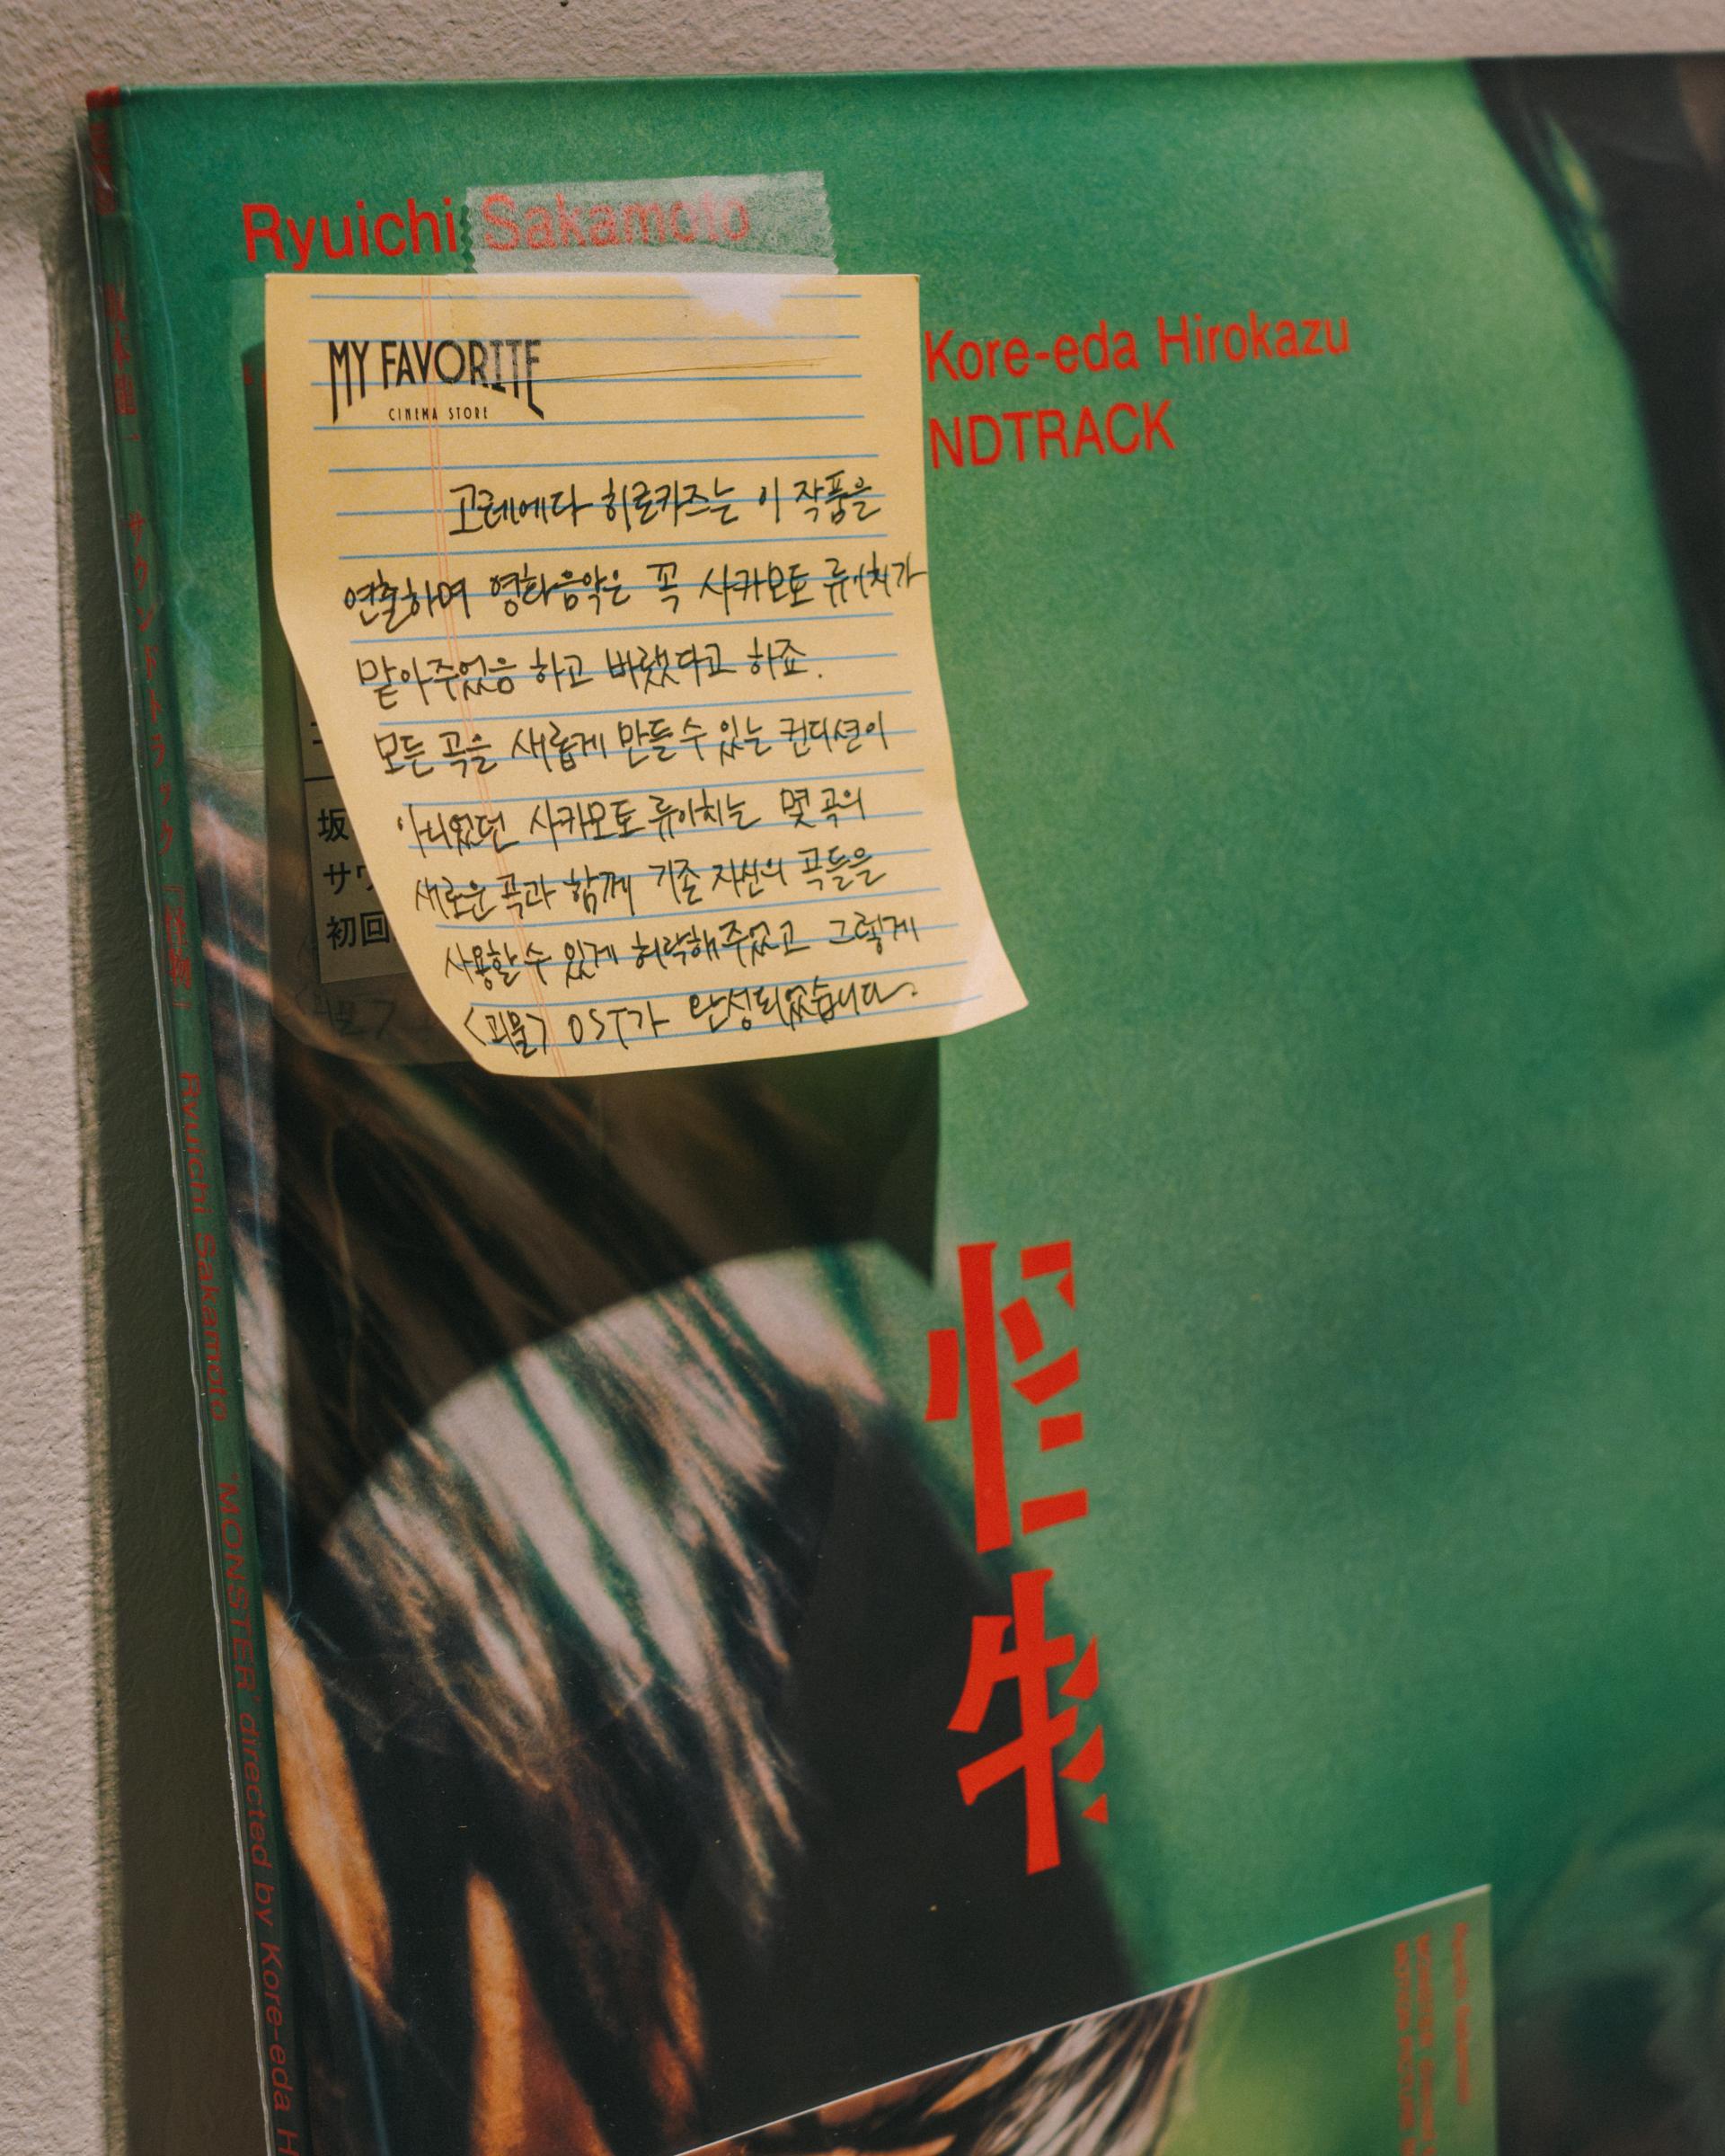 Ryuichi Sakamoto
Kore-eda Hirokazu
NDTRACK
MY FAVORITE
CINEMA STORE
고레에다 히로카즈는 이 작품을
연출하며 영화음악은 꼭 사카모토 류이치가
맡아주었음 하고 바랬다고 하죠.
모든 곡을 새롭게 만들 수 있는 컨디션이
아니었던 사카모토 류이치는 몇 곡의
새로운 곡과 함께 기존 자신의 곡들을
사용할 수 있게 허락해주었고 그렇게
<괴물> OST가 완성되었습니다.
坂
サウ
初回
怪物
サウンドトラック『怪物』 Ryuichi Sakamoto "MONSTER" directed by Kore-eda H